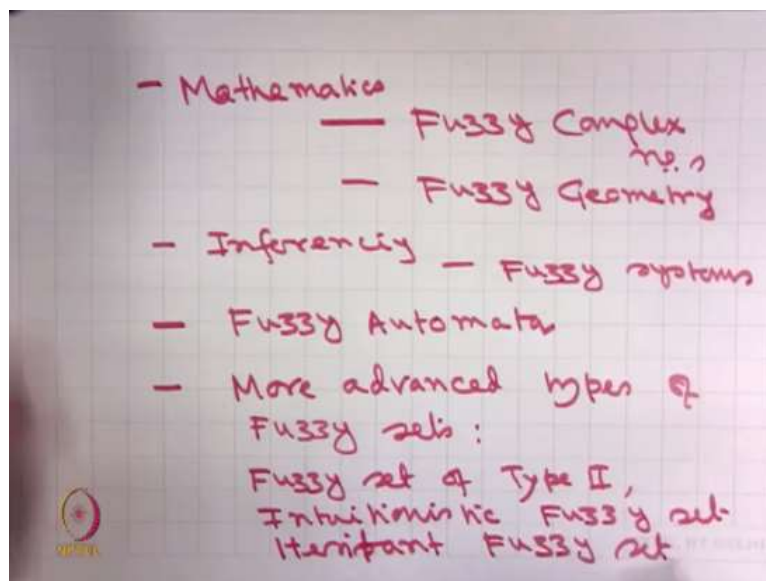 - Mathematics
— Fuzzy Complex
no.s
- Fuzzy Geometry
- Inferencing
- Fuzzy systems
- Fuzzy Automata
- More advanced types of
Fuzzy sets :
Fuzzy set of Type II,
Intuitionistic Fuzzy set
Hesitant Fuzzy set
NPTEL